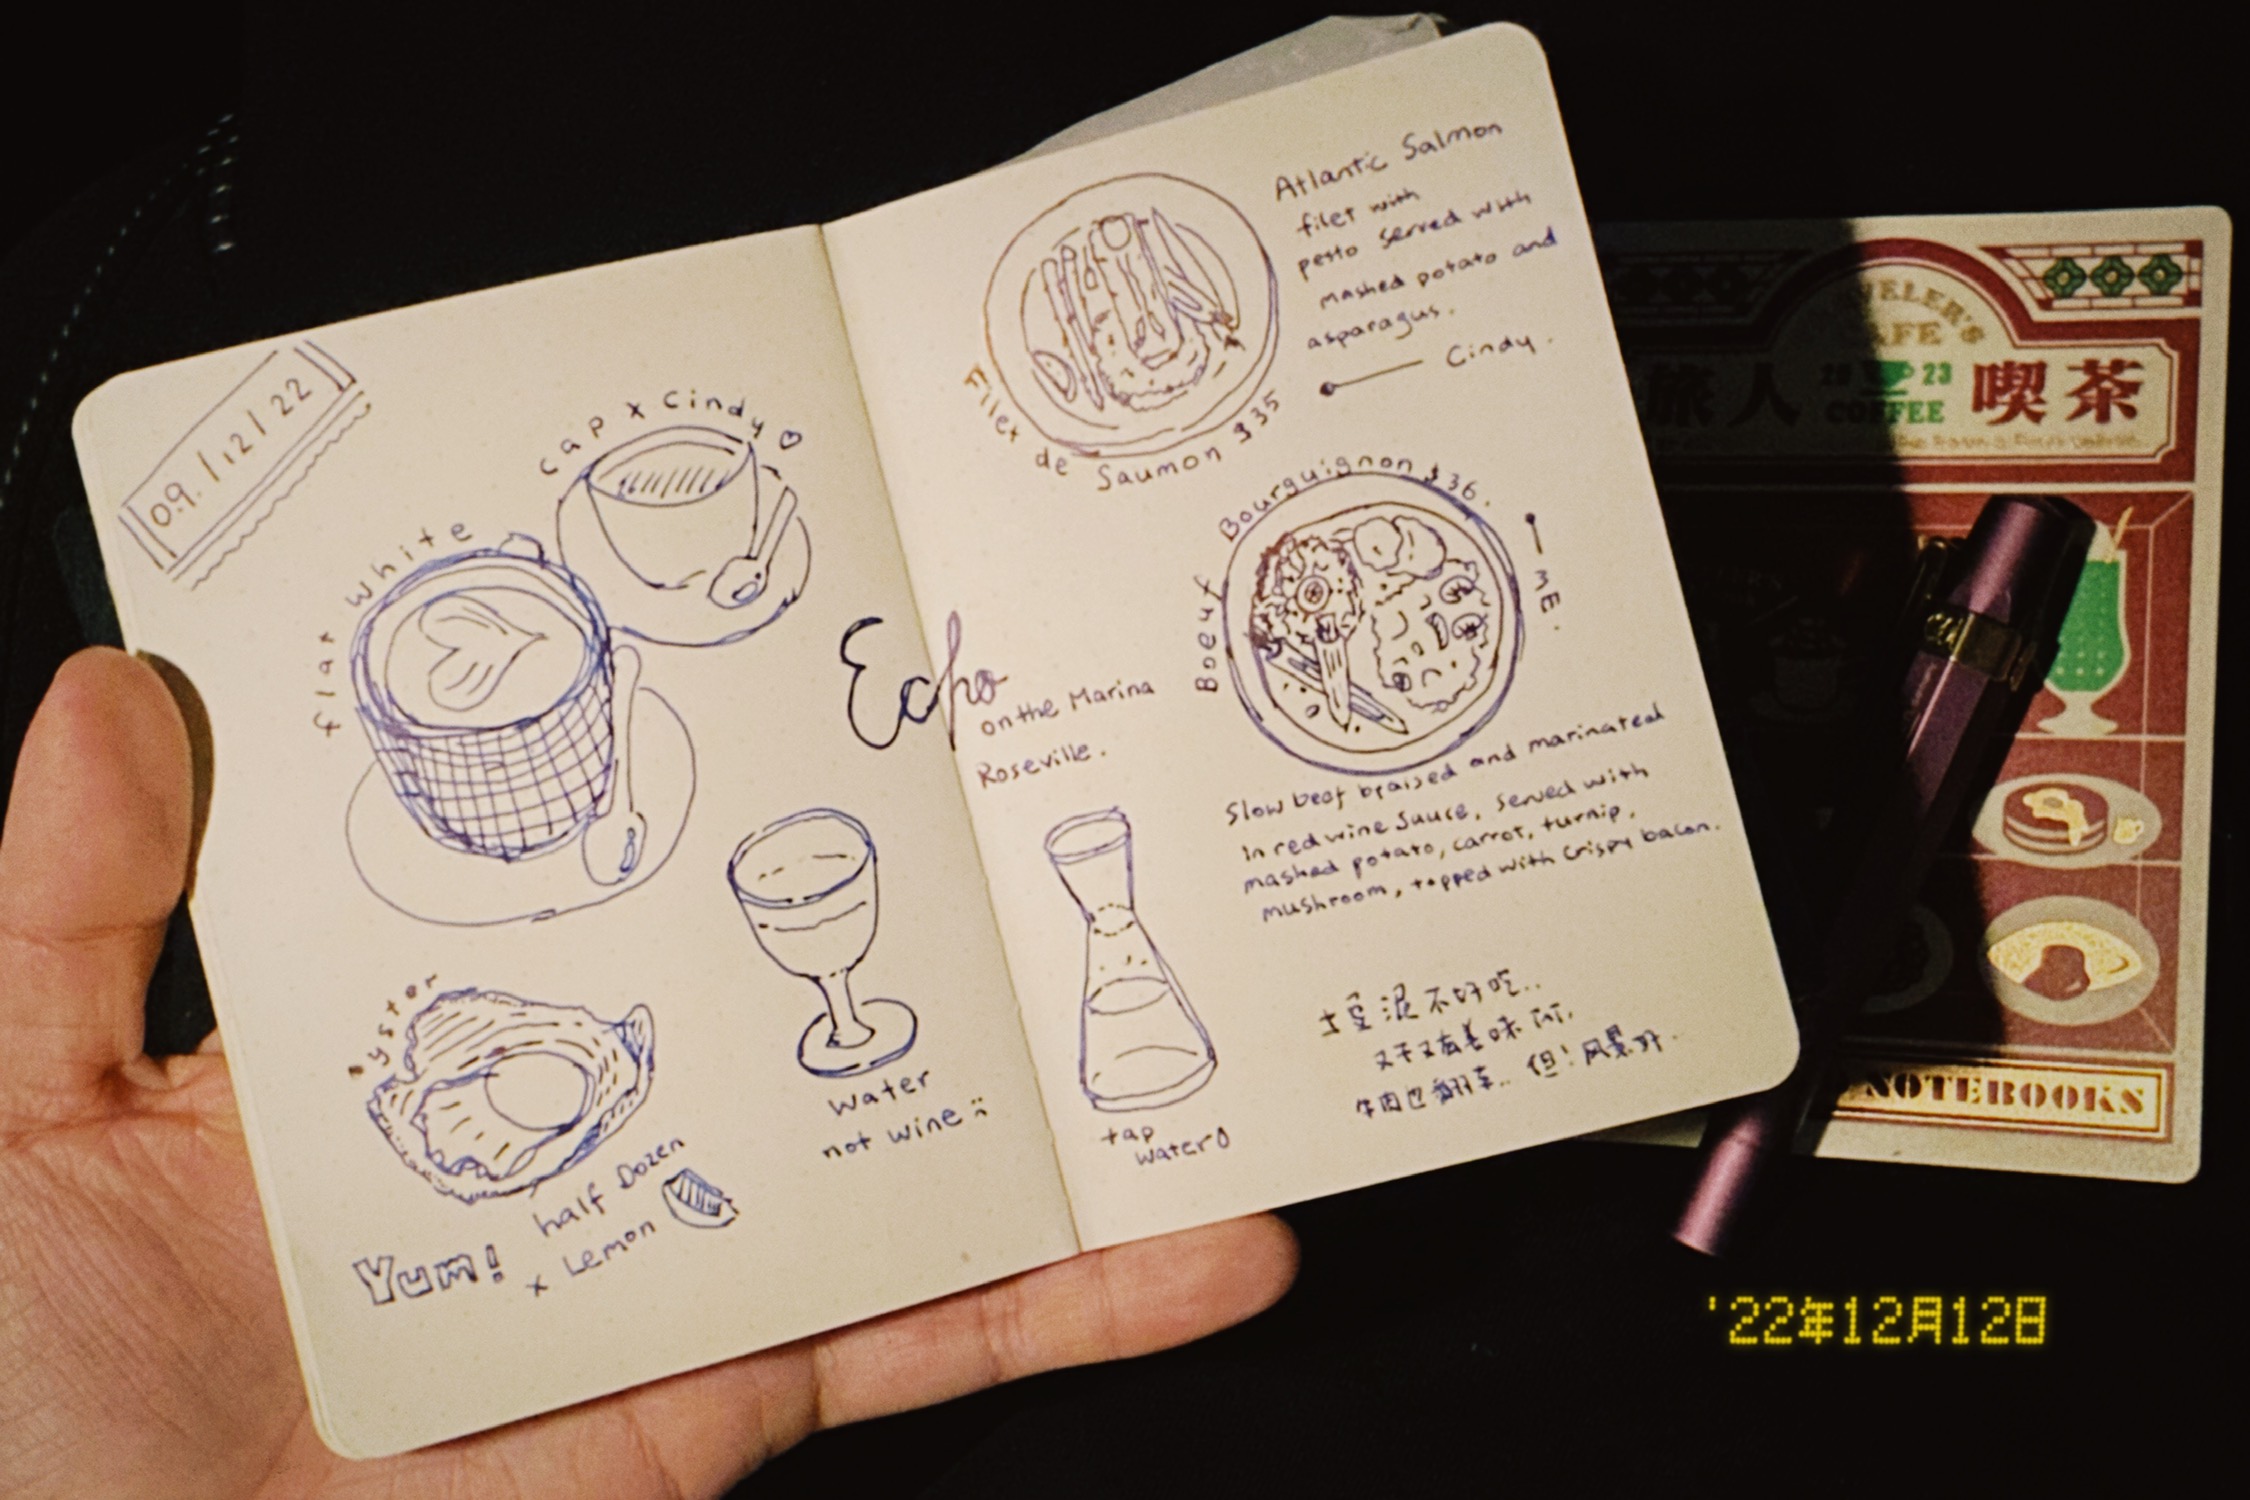 09./12/22
cap x Cindy♡
flat white
Echo
on the Marina
Roseville.
oyster
half Dozen
x Lemon
Yum!
water
not wine
Atlantic Salmon
filet with
pesto served with
mashed potato and
asparagus.
Cindy.
Filet de Saumon $35
Boeuf Bourguignon $36.
ME.
Slow beef braised and marinated
in red wine sauce, served with
mashed potato, carrot, turnip,
mushroom, topped with crispy bacon.
tap
water
土豆泥不好吃..
又干又有姜味
牛肉也翻车.. 但!风景好.
TRAVELER'S
CAFE
旅人 喫茶
20 23
COFFEE
NOTEBOOKS
'22年12月12日